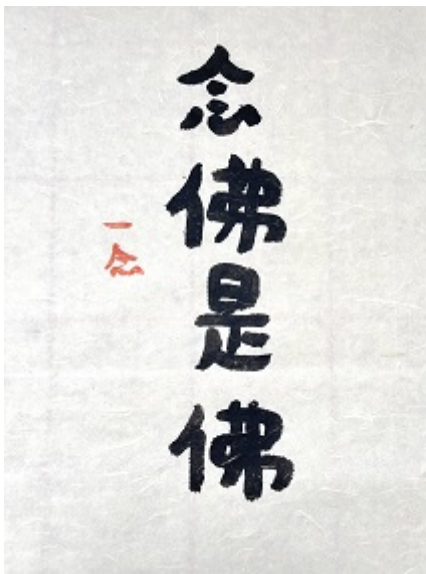 念佛是佛
一念